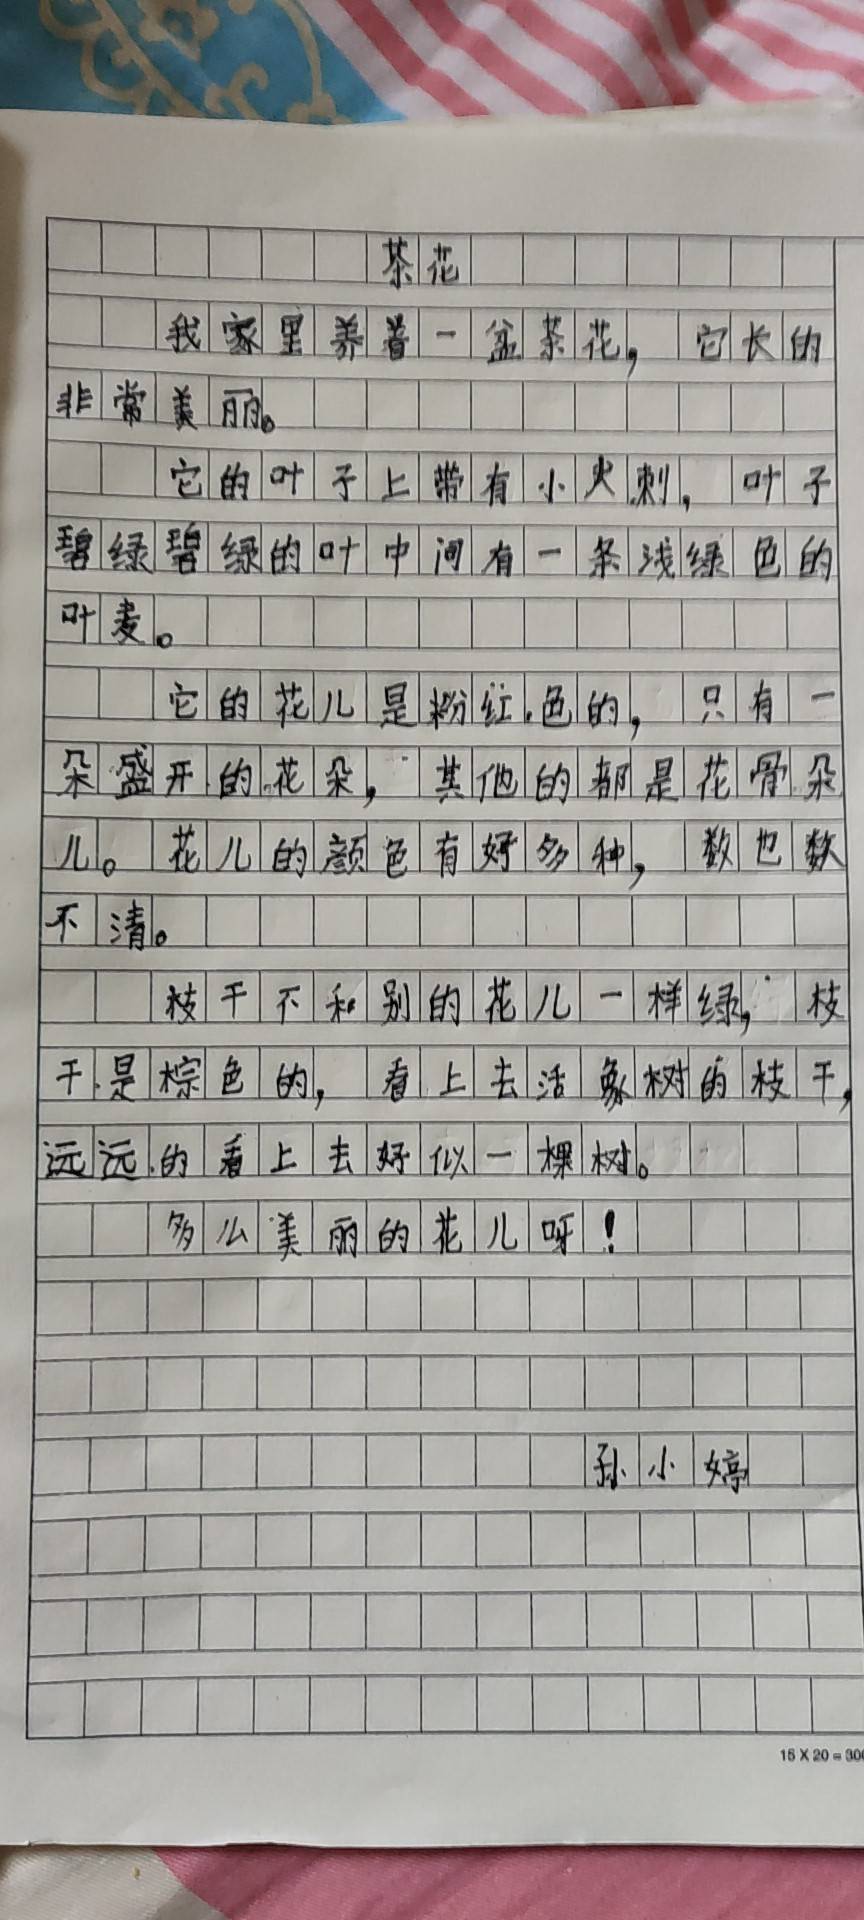 茶花
我家里养着一盆茶花，它长的
非常美丽。
它的叶子上带有小火刺，叶子
碧绿碧绿的叶中间有一条浅绿色的
叶麦。
它的花儿是粉红色的，只有一
朵盛开的花朵，其他的都是花骨朵
儿。花儿的颜色有好多种，数也数
不清。
枝干不和别的花儿一样绿，枝
干是棕色的，看上去活象树的枝干，
远远的看上去好似一棵树。
多么美丽的花儿呀！
孙小婷
15 X 20 = 300